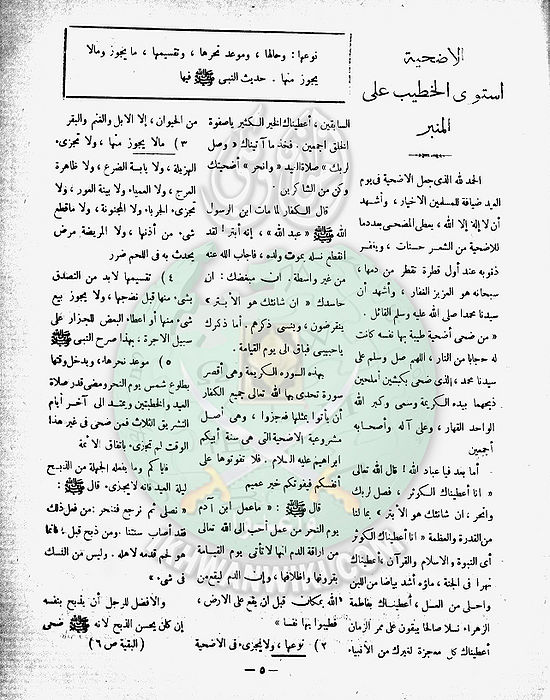 الاضحية
استوى الخطيب على
المنبر
نوعها : وحالها ، وموعد نحرها ، وتقسيمها ، ما يجوز ومالا
يجوز منها . حديث النبي ﷺ فيها
الحمد لله الذى جعل الاضحية فى يوم
العيد ضيافة للمسلمين الاخيار ، وأشهد
أن لا إله إلا الله ، يعطى المضحى بعدد ما
للاضحية من الشعر حسنات ، ويغفر
ذنوبه عند أول قطرة تقطر من دمها ،
سبحانه هو العزيز الغفار ، وأشهد أن
سيدنا محمدا صلى الله عليه وسلم القائل .
« من ضحى أضحية طيبة بها نفسه كانت
له حجابا من النار ، اللهم صل وسلم على
سيدنا محمد ، الذى ضحى بكبشين أملحين
ذبحهما بيده الكريمة وسمى وكبر الله
الواحد القهار ، وعلى آله وأصحابه
أجمعين
أما بعد فيا عباد الله ! قال الله تعالى
« انا أعطيناك الكوثر ، فصل لربك
وانحر ، ان شانئك هو الأبتر » بما لنا
من القدرة والعظمة « انا أعطيناك الكوثر
أى النبوة والاسلام والقرآن ، أعطيناك
نهرا فى الجنة ، ماؤه أشد بياضا من اللبن
واحلى من العسل ، أعطيناك بفاطمة
الزهراء نسلا صالحا يبقون على ممر الزمان
أعطيناك كل معجزة لغيرك من الأنبياء
السابقين ، أعطيناك الخير الكثير ياصفوة
الخلق أجمعين . فخذ ما آتيناك « وصل
لربك » صلاة العيد « وانحر » أضحيتك
وكن من الشاكرين .
قال الكفار لما مات ابن الرسول
الله ﷺ « عبد الله » ، إنه أبتر ! لقد
انقطع نسله بموت ولده ، فاجاب الله عنه
من غير واسطة . ان مبغضك : ان
حاسدك « ان شانئك هو الأبتر »
ينقرضون ، وينسى ذكرهم . أما ذكرك
ياحبيبى فباق الى يوم القيامة .
بهذه السورة الكريمة وهى أقصر
سورة تحدى بها الله تعالى جميع الكفار
أن يأتوا بمثلها فعجزوا ، وهى أصل
مشروعية الاضحية التى هى سنة أبيكم
ابراهيم عليه السلام . فلا تفوتوها على
أنفسكم فيفوتكم خير عميم
قال ﷺ : « ماعمل ابن آدم
يوم النحر من عمل أحب الى الله تعالى
من اراقة الدم انها لاتأتى يوم القيامة
بقرونها وأظلافها ، وإن الدم ليقع من
الله بمكان قبل أن يقع على الارض ،
فطيبوا بها نفسا »
٢) نوعها ، ولا يجزى فى الاضحية
من الحيوان ، إلا الابل والغنم والبقر
٣) مالا يجوز منها ، ولا تجزىء
الهزيلة ، ولا يابسة الضرع ، ولا ظاهرة
العرج ، ولا العمياء ولا بينة العور ، ولا
تجزىء الجرباء ولا المجنونة ، ولا ماقطع
شىء من أذنها ، ولا المريضة مرض
يحدث به فى اللحم ضرر
٤) تقسيمها لابد من التصدق
بشىء منها قبل نضجها ، ولا يجوز بيع
شىء منها أو اعطاء البعض للجزار على
سبيل الاجرة . بهذا صرح النبى ﷺ
٥) موعد نحرها ، ويدخل وقتها
بطلوع شمس يوم النحر ومضى قدر صلاة
العيد والخطبتين ويمتد الى آخر أيام
التشريق الثلاثة فمن ضحى فى غير هذا
الوقت لم تجزىء باتفاق الائمة
فاياكم وما يفعله الجهلة من الذبح
ليلة العيد فانه لا يجزىء . قال ﷺ :
« نصلى ثم نرجع فننحر : من فعل ذلك
فقد أصاب سنتنا . ومن ذبح قبل ؛ فانما
هو لحم قدمه لاهله . وليس من النسك
فى شىء »
والافضل للرجل أن يذبح بنفسه
إن كان يحسن الذبح لانه ﷺ ضحى
(البقية ص ٦)
— ٥ —
IKHWANWIKI.COM